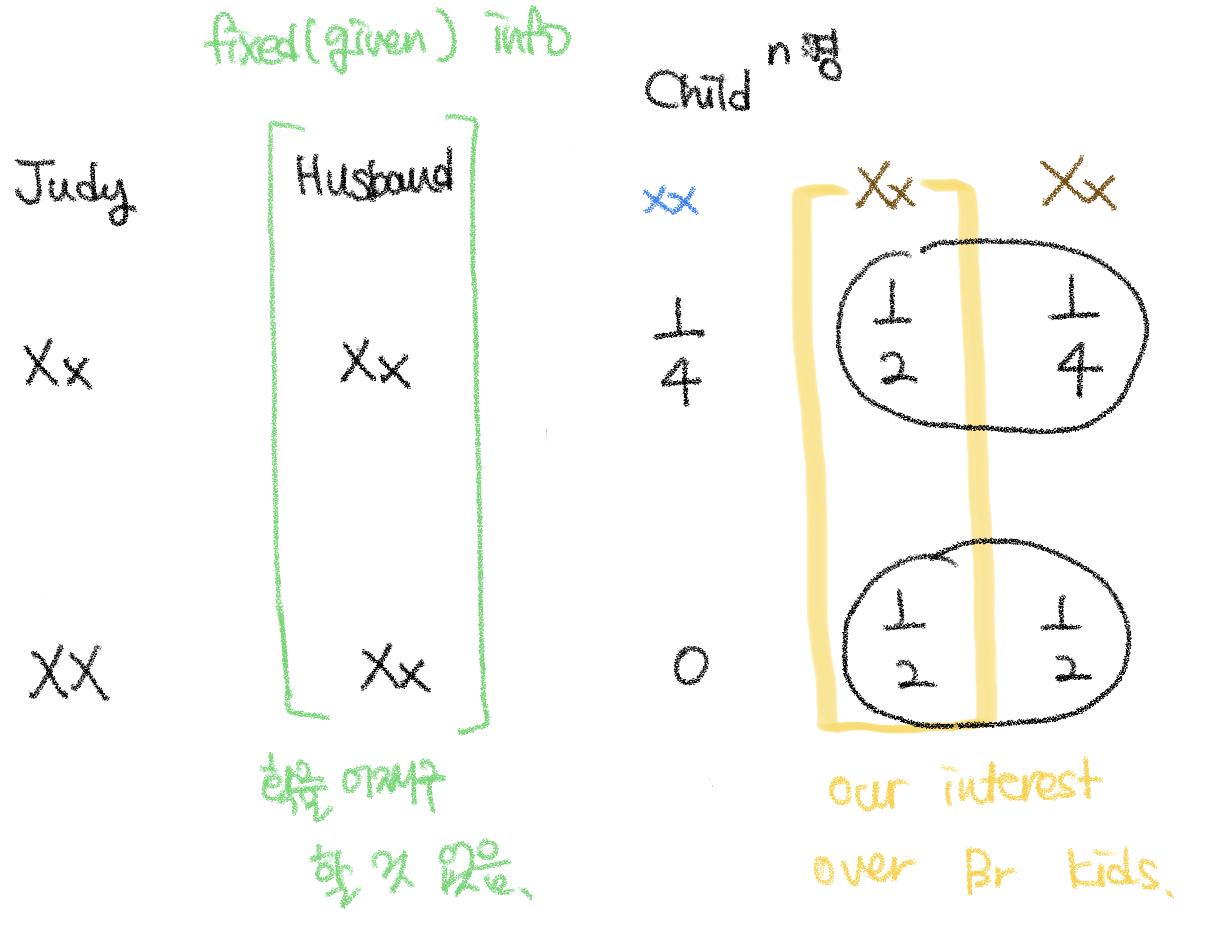 fixed(given) info
n명
Child
Judy Husband xx Xx Xx
Xx Xx 1/4 1/2 1/4
XX Xx 0 1/2 1/2
확률 이제부
할 것 없음.
our interest
over Br kids.